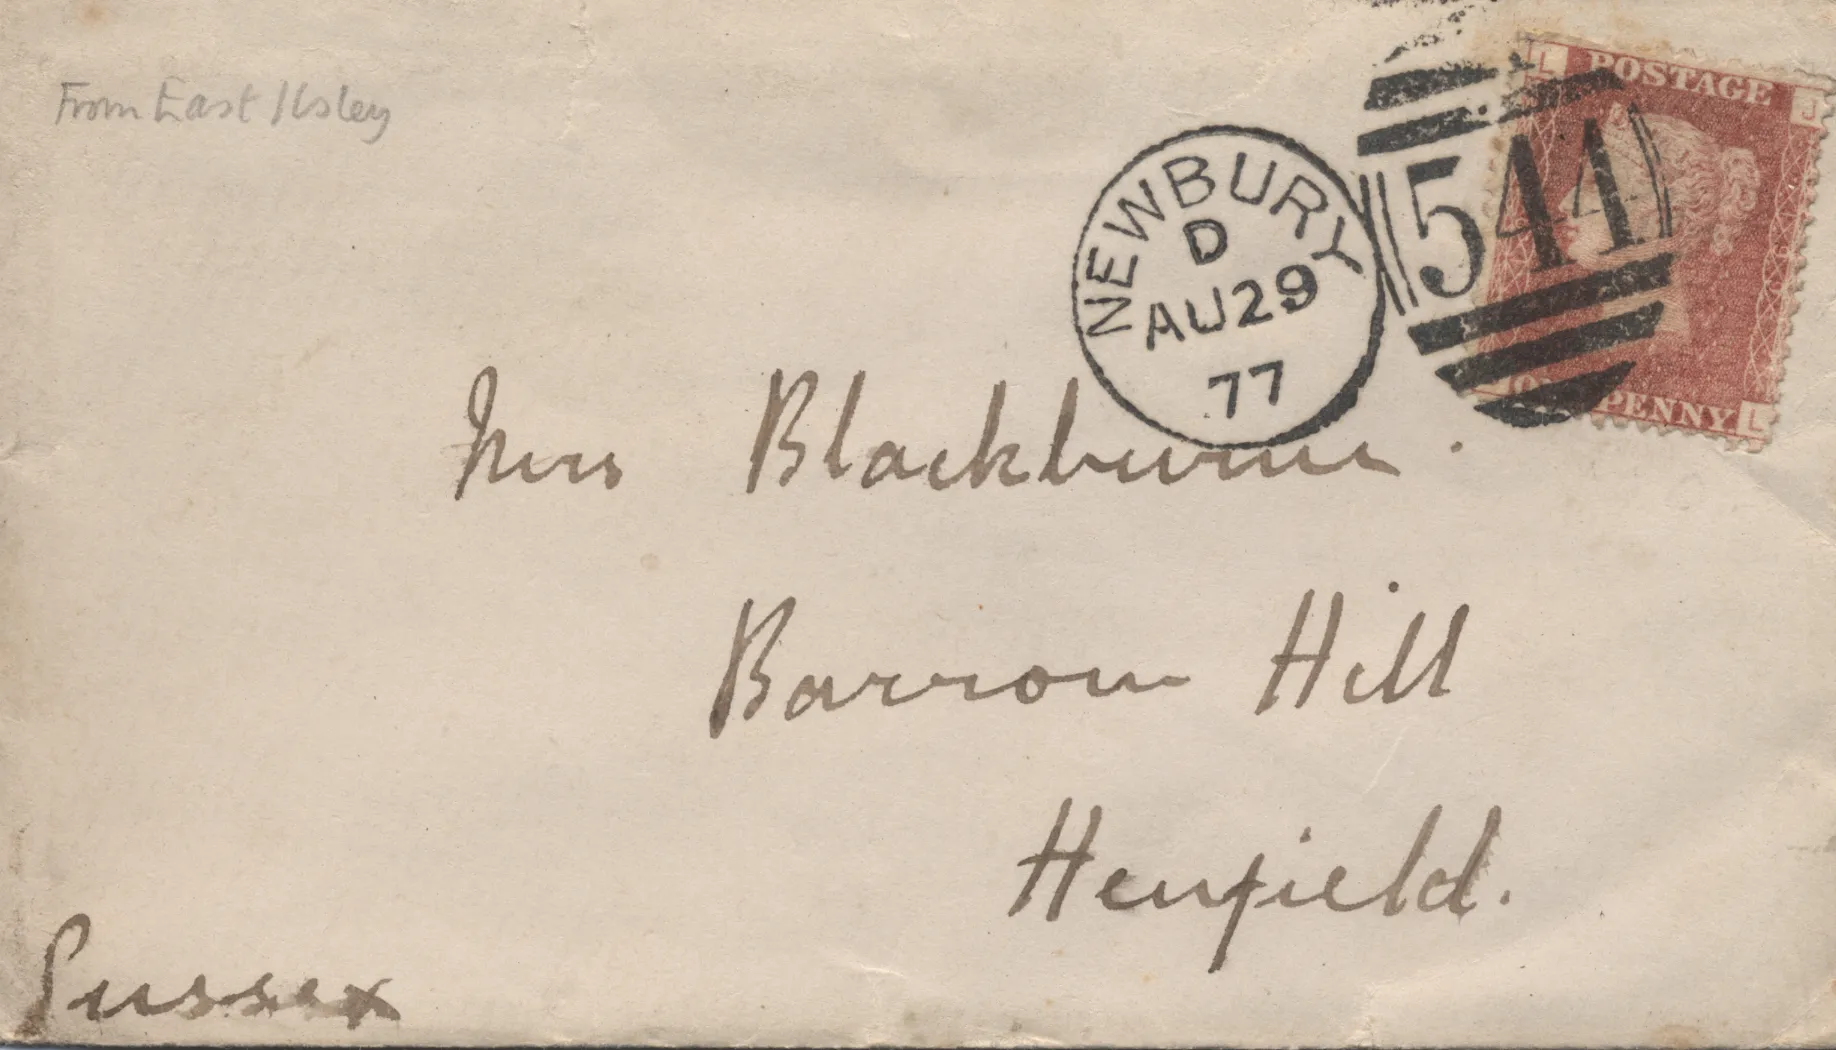 From East Ilsley
L POSTAGE J
NEWBURY
D
AU29
77
544
ONE PENNY L
Mrs Blackburne.
Barrow Hill
Henfield.
Sussex